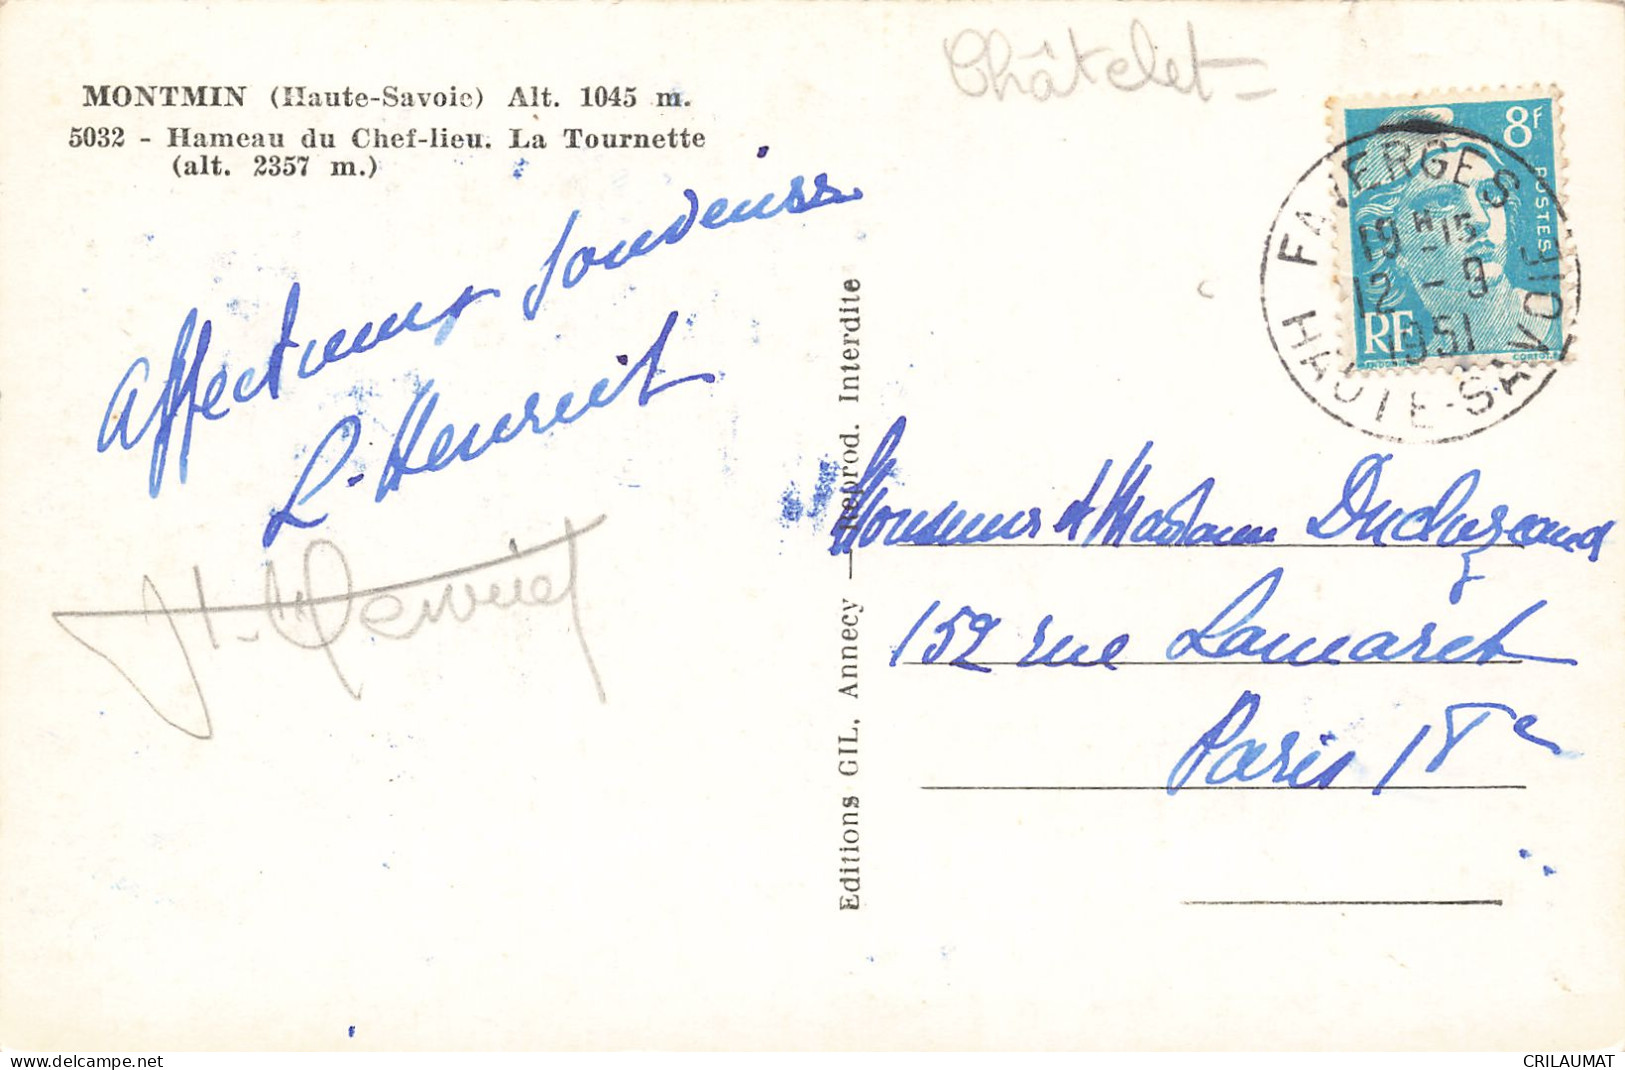 MONTMIN (Haute-Savoie) Alt. 1045 m.
5032 - Hameau du Chef-lieu. La Tournette
(alt. 2357 m.)
Affectueux souvenirs
L. Henriet
H.
Editions GIL, Annecy — Reprod. Interdite
Châtelet
8F
POSTES
RF
FAVERGES
19H-15
12-9
1951
HAUTE-SAVOIE
Monsieur et Madame
152 rue Lamarck
Paris 18e
www.delcampe.net
CRILAUMAT